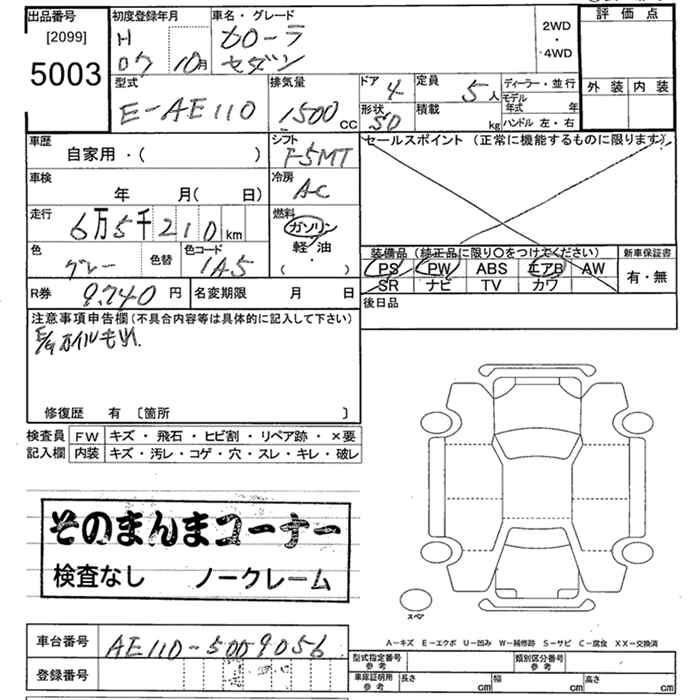 出品番号
[2099]
5003
初度登録年月
H
07 10月
車名・グレード
カローラ
セダン
2WD
・
4WD
評価点
外装 内装
型式
E-AE110
排気量
1500 CC
ドア 4
形状 SD
定員 5人
積載 kg
ディーラー・並行
モデル
年式 年
ハンドル 左・右
車歴
自家用・( )
シフト
F5MT
セールスポイント (正常に機能するものに限ります)
車検
年 月( 日)
冷房
AC
走行
6万5千210km
燃料
ガソリン
軽・油
( ・ )
色
グレー
色替
色コード
1A5
装備品 (純正品に限り〇をつけてください)
PS PW ABS エアB AW
SR ナビ TV カワ
新車保証書
有・無
R券 9,740 円
名変期限 月 日
後日品
注意事項申告欄 (不具合内容等は具体的に記入して下さい)
E/Gオイルモレ
修復歴 有 [箇所 ]
検査員
記入欄
FW キズ・飛石・ヒビ割・リペア跡・×要
内装 キズ・汚レ・コゲ・穴・スレ・キレ・破レ
そのまんまコーナー
検査なし ノークレーム
スペア
A-キズ E-エクボ U-凹み W-補修跡 S-サビ C-腐食 XX-交換済
車台番号 AE110-5009056
登録番号
型式指定番号
参考
類別区分番号
参考
車庫証明用
参考
長さ cm
幅 cm
高さ cm